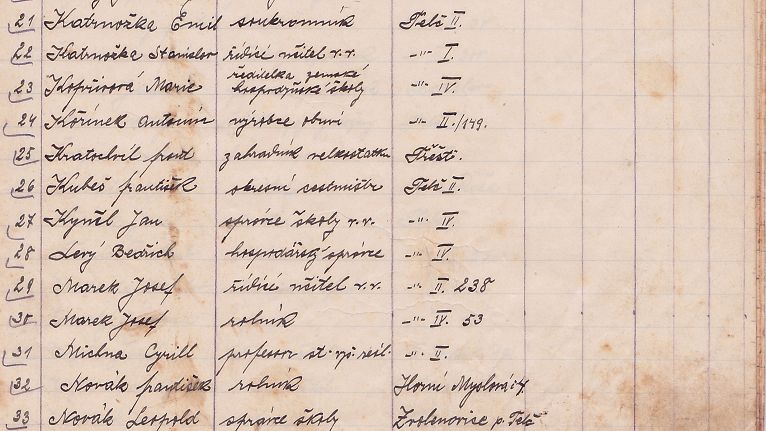 21 Katrnožka Emil soukromník Telč II.
22 Katrnožka Stanislav řídící učitel v.v. -"- I.
ředitelka zemské
23 Kopřivová Marie hospodyňské školy -"- IV.
24 Kořínek Antonín výrobce obuvi -"- II./149.
25 Kratochvíl zahradník velkostatku Třešť.
26 Kubeš František okresní cestmistr Telč II.
27 Kynčl Jan správce školy v.v. -"- IV.
28 Levý Bedřich hospodářský správce -"- IV.
29 Marek Josef řídící učitel v.v. -"- II. 238
30 Marek Josef rolník -"- IV. 53
31 Michna Cyrill profesor st. vyš. reál. -"- II.
32 Novák František rolník Horní Myslová
33 Novák Leopold správce školy Zvolenovice p. Telč